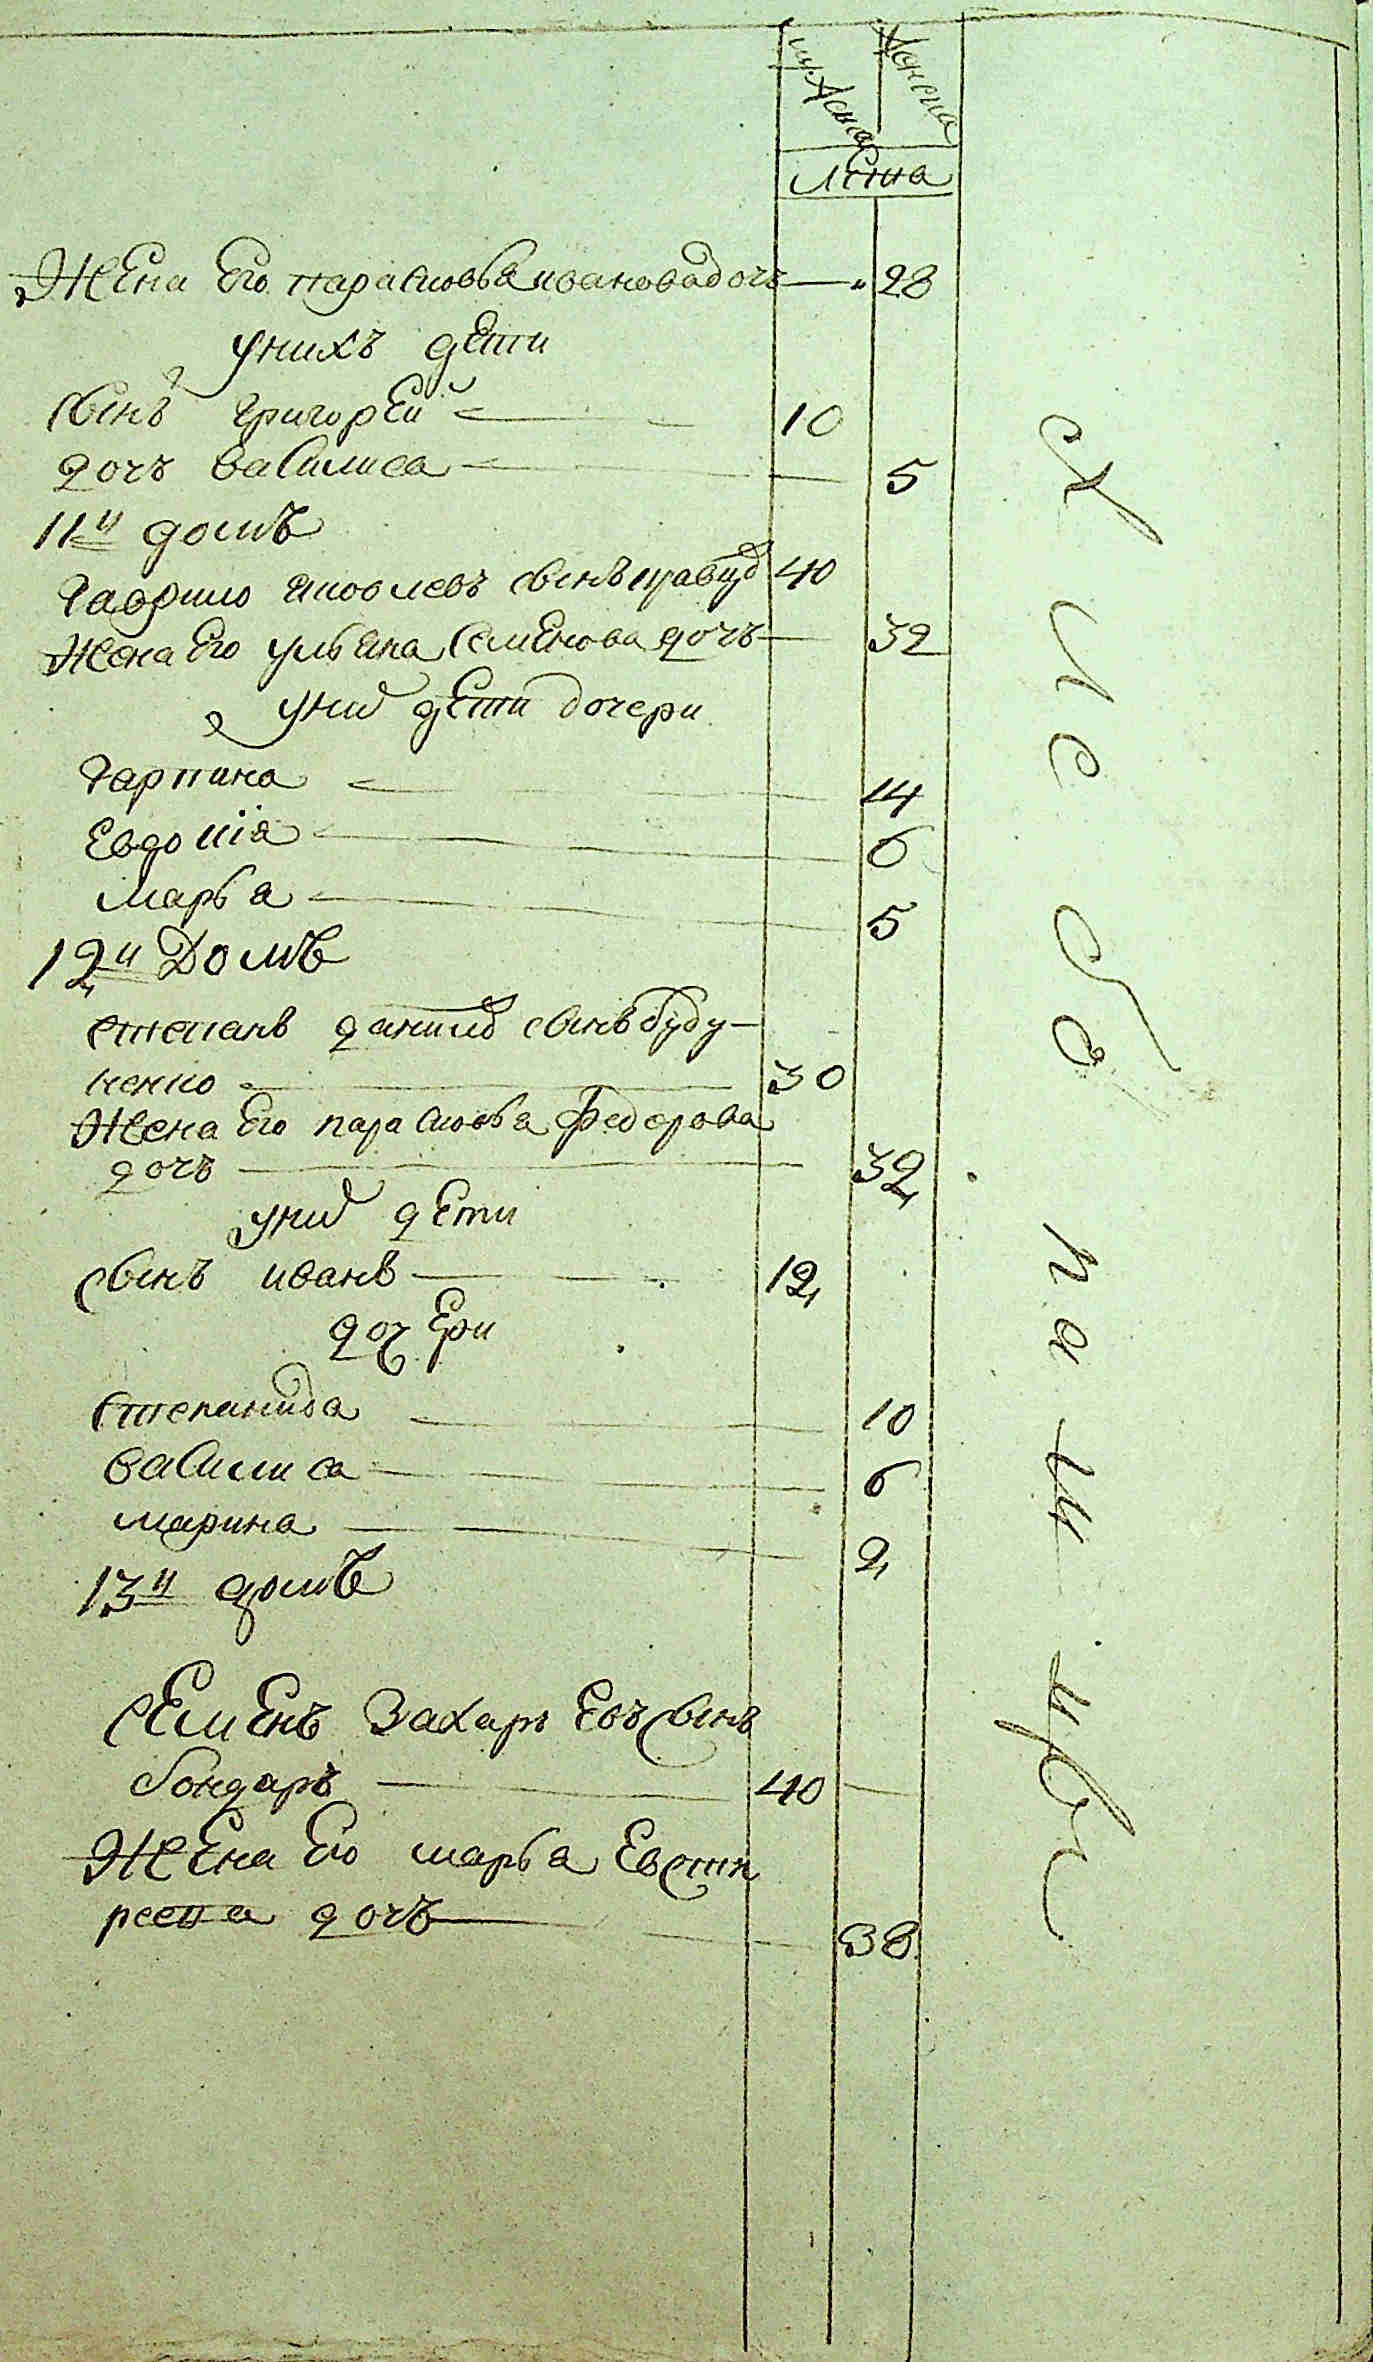 мужеска женска
лета
Жена Его парасковья ивановадочь — 28
у нихъ дети
сынъ григорей — 10
дочь василиса — 5
11й домъ
гаврило яковлевъ сынъ кравцо 40
Жена Его ульяна семенова дочь — 32
у них дети дочери
гарпина — 14
Евдокія — 6
марья — 5
12й Домъ
степанъ данило сынъ буду-
ненко — 30
Жена Его парасковья федорова
дочь — 32
у них дети
сынъ иванъ — 12
дочери
степанида — 10
василиса — 6
марина — 2
13й домъ
СЕмЕнъ Захарьевъ сынъ
бондарь — 40 —
ЖЕна Его марья Евсти
дочь — 38